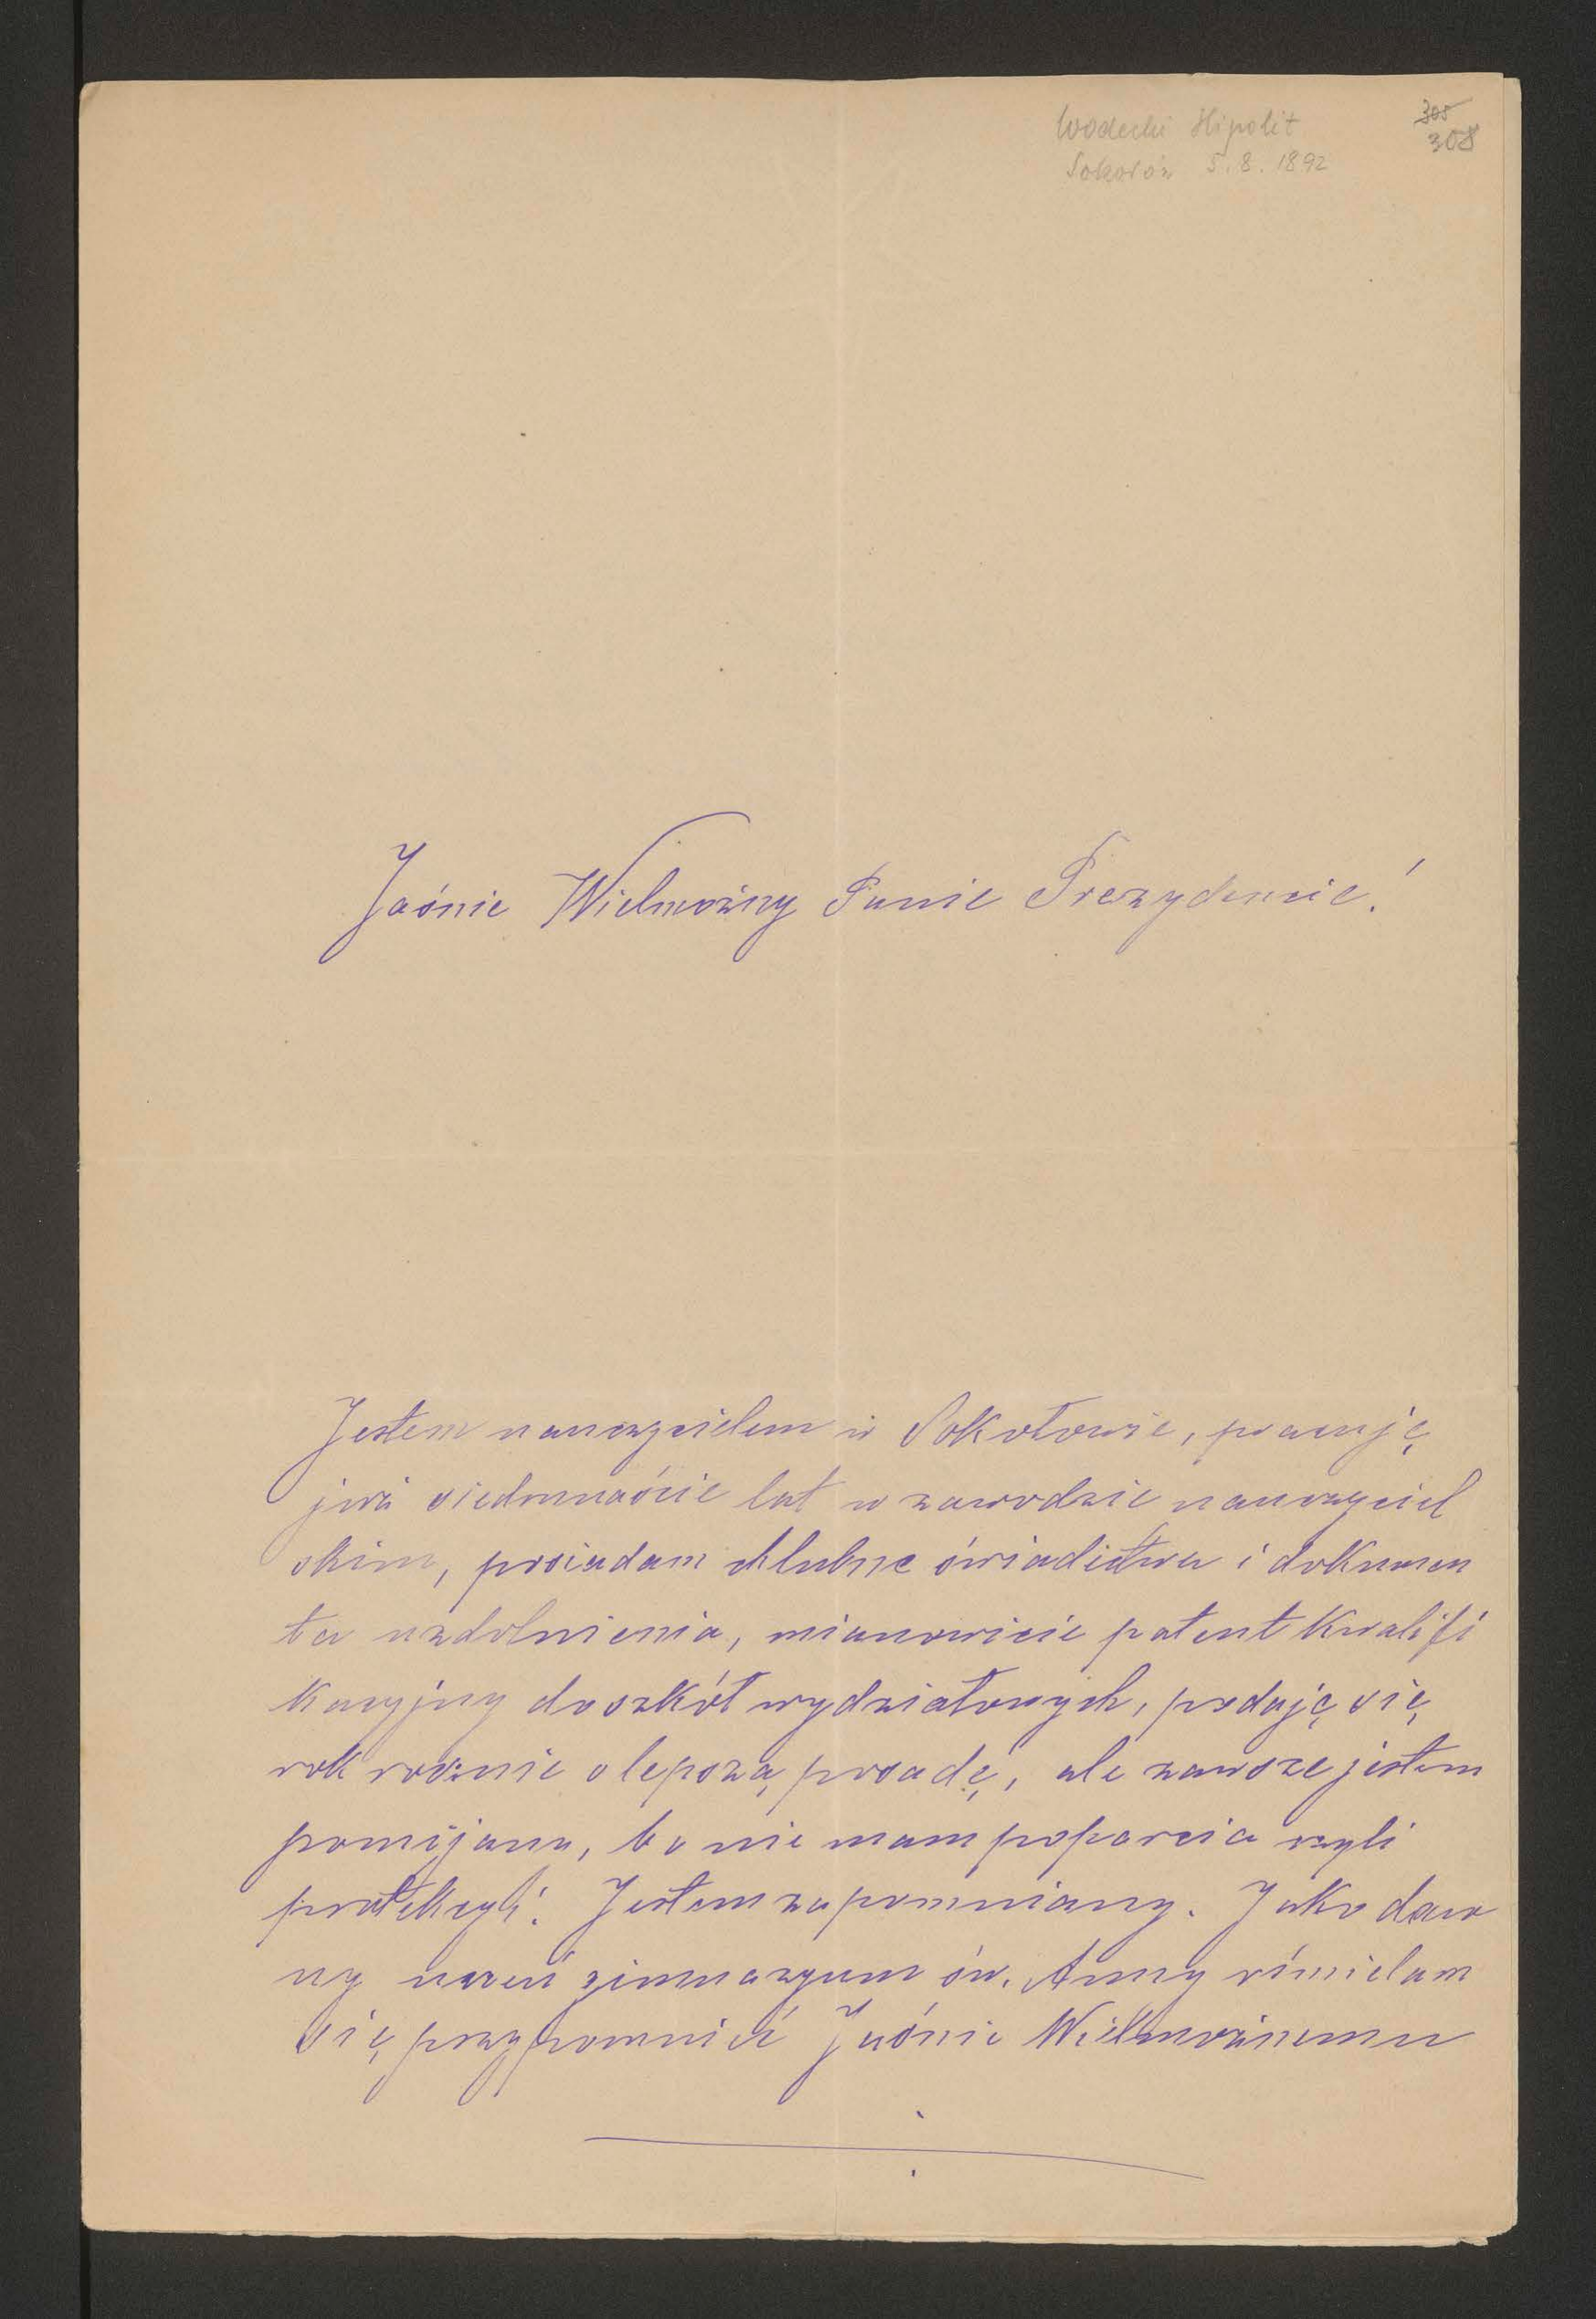 Wodecki Hipolit
Sokołów 5.8.1892
305
308
Jaśnie Wielmożny Panie Prezydencie!
Jestem nauczycielem w Sokołowie, pracuję
już siedmnaście lat w zawodzie nauczyciel
skim, posiadam chlubne świadectwa i dokumen
ta uzdolnienia, mianowicie patent kwalifi
kacyjny do szkół wydziałowych, podaję się
rok rocznie o lepszą posadę, ale zawsze jestem
pomijany, bo nie mam poparcia czyli
protekcyi. Jestem zapomniany. Jako daw
ny uczeń gimnazyum św. Anny ośmielam
się przypomnieć Jaśnie Wielmożnemu